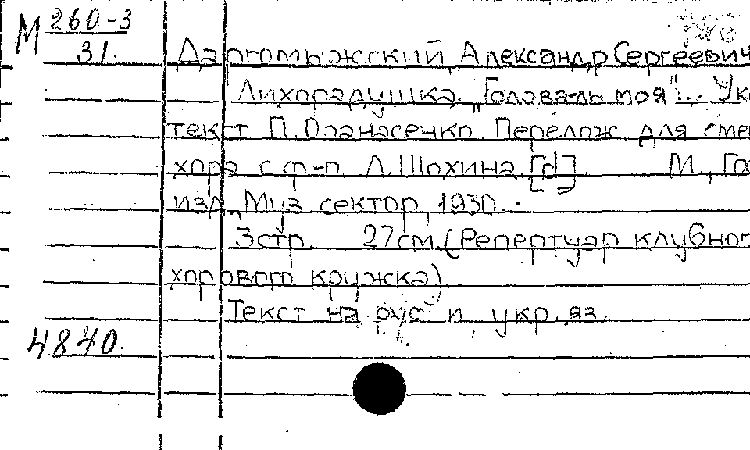 М 260-3
31.
Даргомыжский, Александр Сергеевич
Лихорадушка. "Голова-ль моя"...
текст П. Панасенко. Перелож. для
хора с ф-п. А. Шохина. [d] М., Гос
изд., Муз. сектор, 1930.
3 стр. 27 см. (Репертуар клубног
хорового кружка)
Текст на рус. и укр. яз.
4840.